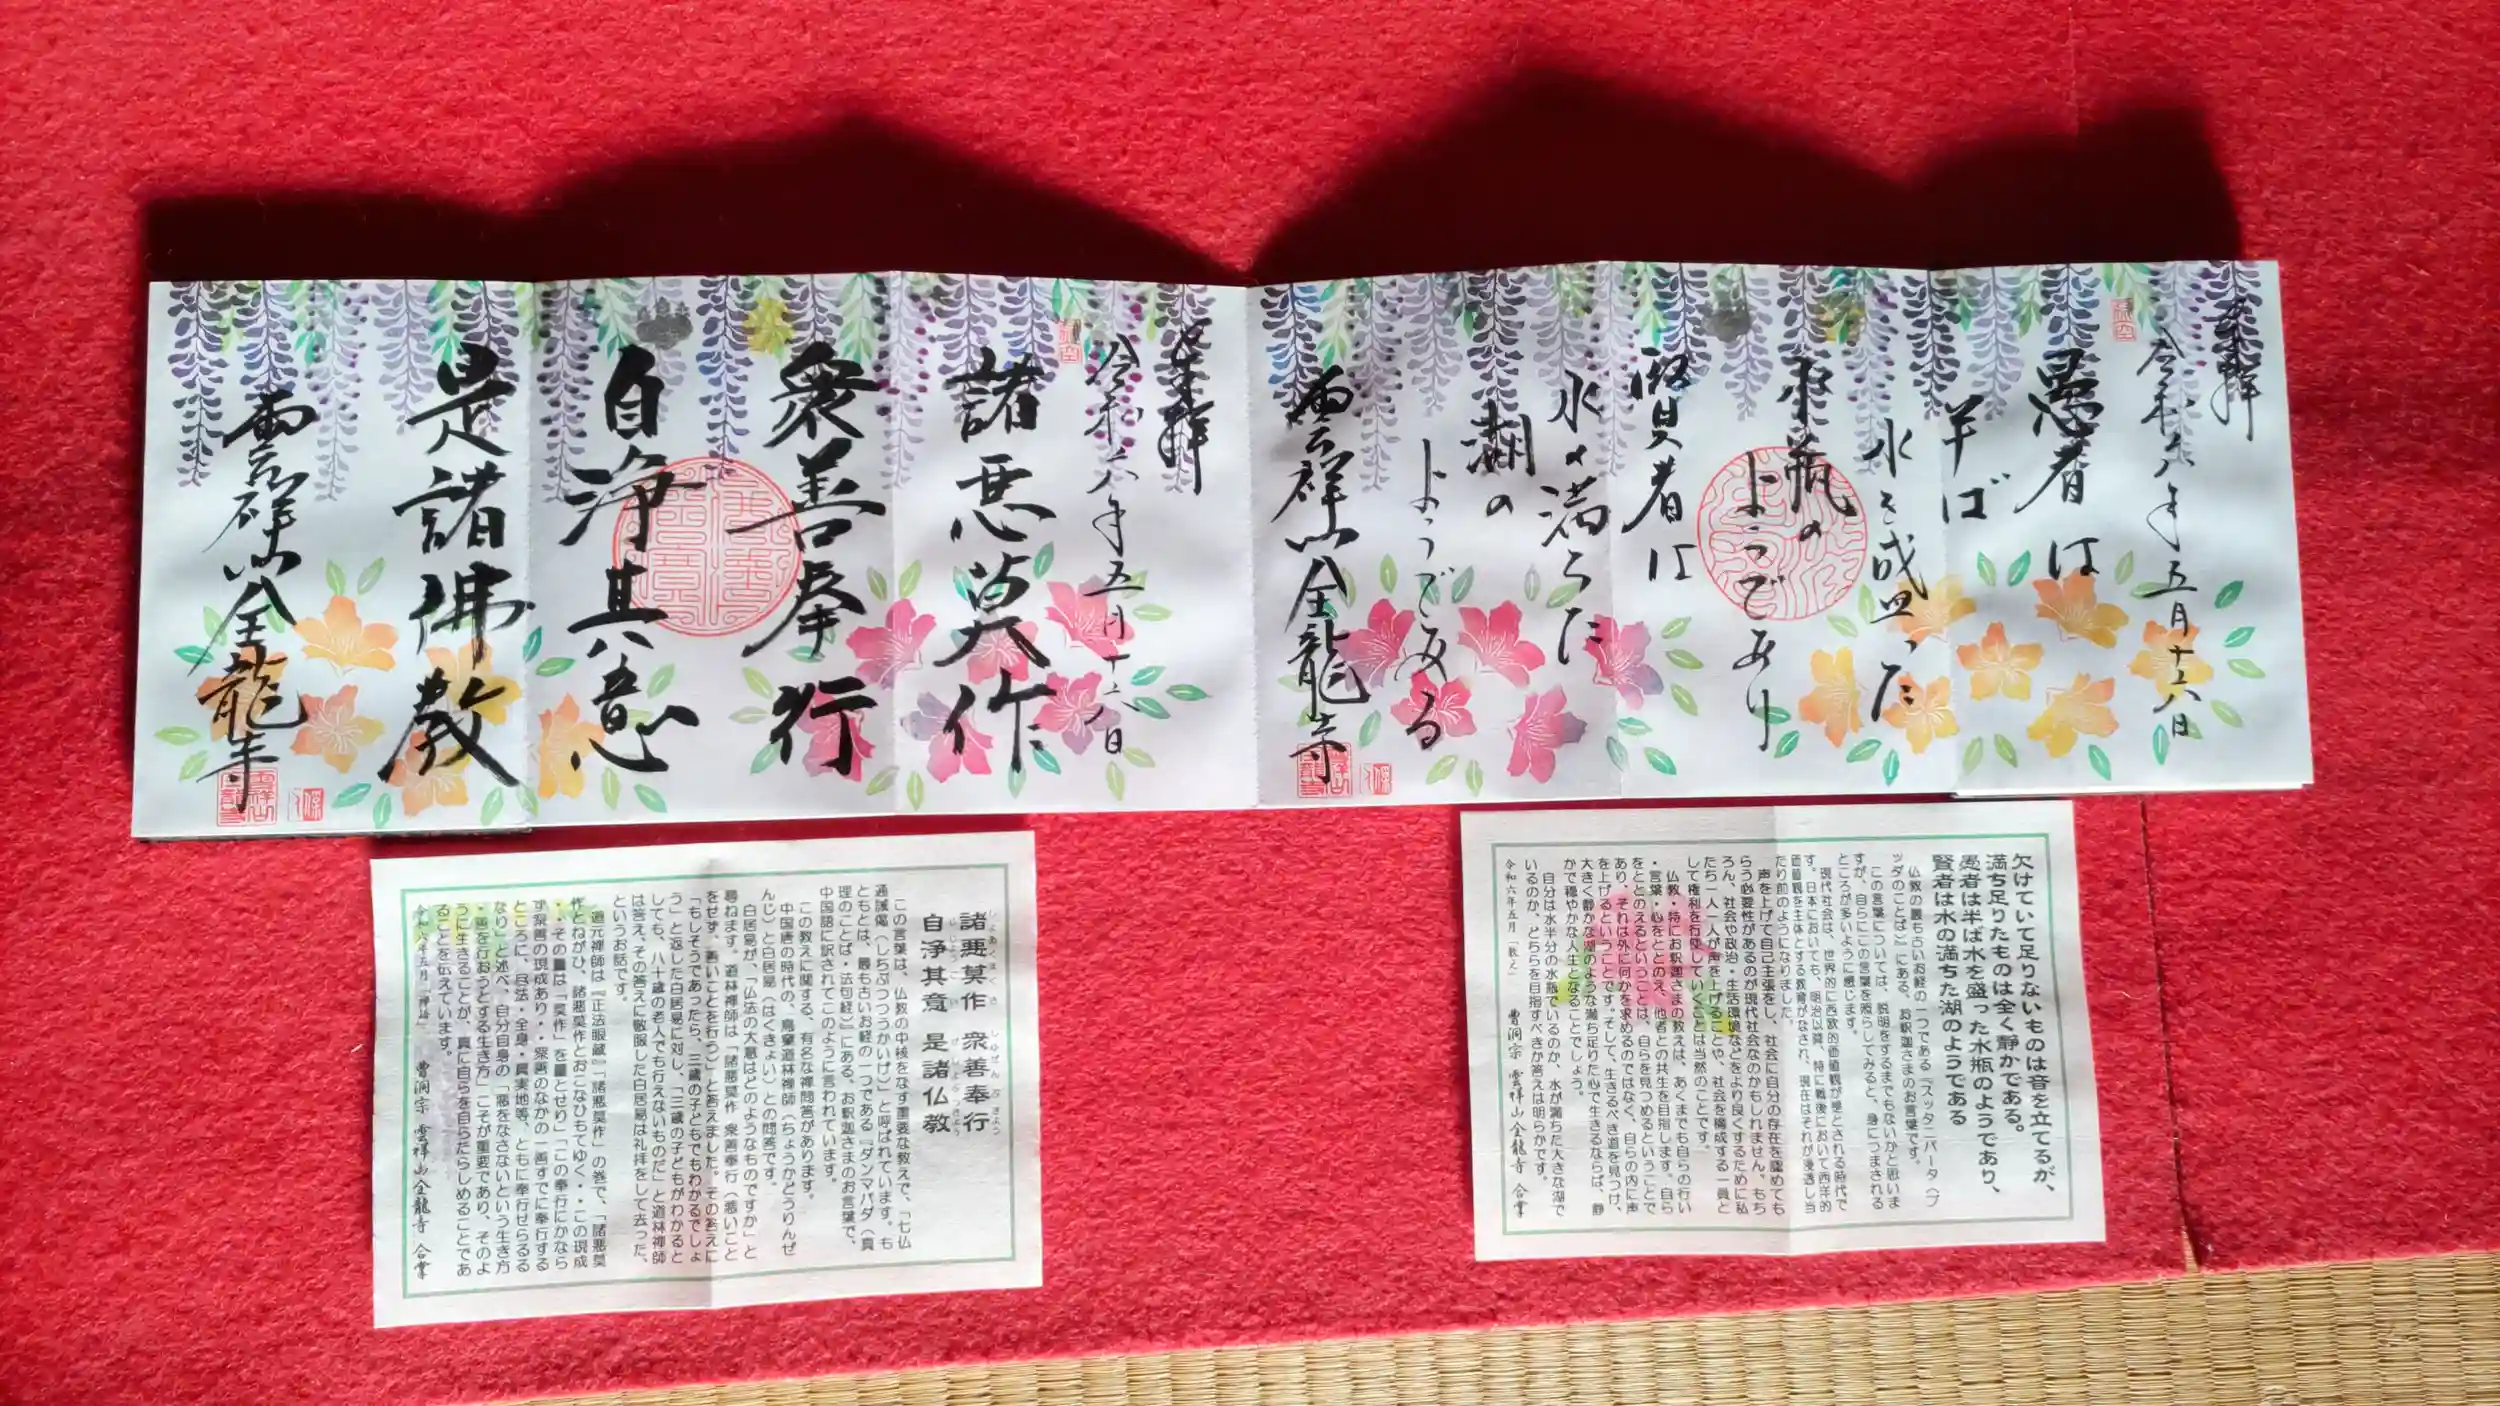 奉拝
令和六年五月十六日
愚者は
半ば
水を盛った
水瓶の
ようであり
賢者は
水の満ちた
湖の
ようである
雲祥山全龍寺
奉拝
令和六年五月十六日
諸悪莫作
衆善奉行
自浄其意
是諸佛教
雲祥山全龍寺
欠けていて足りないものは音を立てるが、
満ち足りたものは全く静かである。
愚者は半ば水を盛った水瓶のようであり、
賢者は水の満ちた湖のようである
仏教の最も古いお経の一つである『スッタニパータ(ブ
ッダのことば)』にある、お釈迦さまのお言葉です。
この言葉については、説明をするまでもないかと思いま
すが、自らにこの言葉を照らしてみると、身につまされる
ところが多いように感じます。
現代社会は、世界的に西欧的価値観が是とされる時代で
す。日本においても、明治以降、特に戦後において西洋的
価値観を主体とする教育がなされ、現在はそれが浸透し当
たり前のようになりました。
声を上げて自己主張をし、社会に自分の存在を認めても
らう必要性があるのが現代社会なのかもしれません。もち
ろん、社会や政治・生活環境などをより良くするために私
たち一人一人が声を上げることや、社会を構成する一員と
して権利を行使していくことは当然のことです。
仏教・特にお釈迦さまの教えは、あくまでも自らの行い
・言葉・心をととのえ、他者との共生を目指します。自ら
をととのえるということは、自らを見つめるということで
あり、それは外に何かを求めるのではなく、自らの内に声
を上げるということです。そして、生きるべき道を見つけ、
大きく静かな湖のような満ち足りた心で生きるならば、静
かで穏やかな人生となることでしょう。
自分は水半分の水瓶でいるのか、水が満ちた大きな湖で
いるのか、どちらを目指すべきか答えは明らかです。
令和六年五月「教え」 曹洞宗 雲祥山全龍寺 合掌
諸悪莫作 衆善奉行
自浄其意 是諸仏教
この言葉は、仏教の中核をなす重要な教えで、「七仏
通誡偈(しちぶつつうかいげ)」と呼ばれています。も
ともとは、最も古いお経の一つである『ダンマパダ(真
理のことば・法句経)』にある、お釈迦さまのお言葉で、
中国語に訳されてこのように言われています。
この教えに関する、有名な禅問答があります。
中国唐の時代の、鳥窠道林禅師(ちょうかどうりんぜ
んじ)と白居易(はくきょい)との問答です。
白居易が、「仏法の大意はどのようなものですか」と
尋ねます。道林禅師は「諸悪莫作 衆善奉行(悪いこと
をせず、善いことを行う)」と答えました。その答えに
「もしそうであったら、三歳の子どもでもわかるでしょ
う」と返した白居易に対し、「三歳の子どもがわかると
しても、八十歳の老人でも行えないものだ」と道林禅師
は答え、その答えに敬服した白居易は礼拝をして去った、
というお話です。
道元禅師は『正法眼蔵』「諸悪莫作」の巻で、「諸悪莫
作とねがひ、諸悪莫作とおこなひもてゆく・・この現成
・・その量は「莫作」を量とせり」「この奉行にかなら
ず衆善の現成あり・・衆善のなかの一善すでに奉行する
ところに、尽法・全身・真実地等、ともに奉行せらるる
なり」と述べ、自分自身の「悪をなさないという生き方
・善を行おうとする生き方」こそが重要であり、そのよ
うに生きることが、真に自らを自らたらしめることであ
ることを伝えています。
令和六年五月「禅語」 曹洞宗 雲祥山全龍寺 合掌